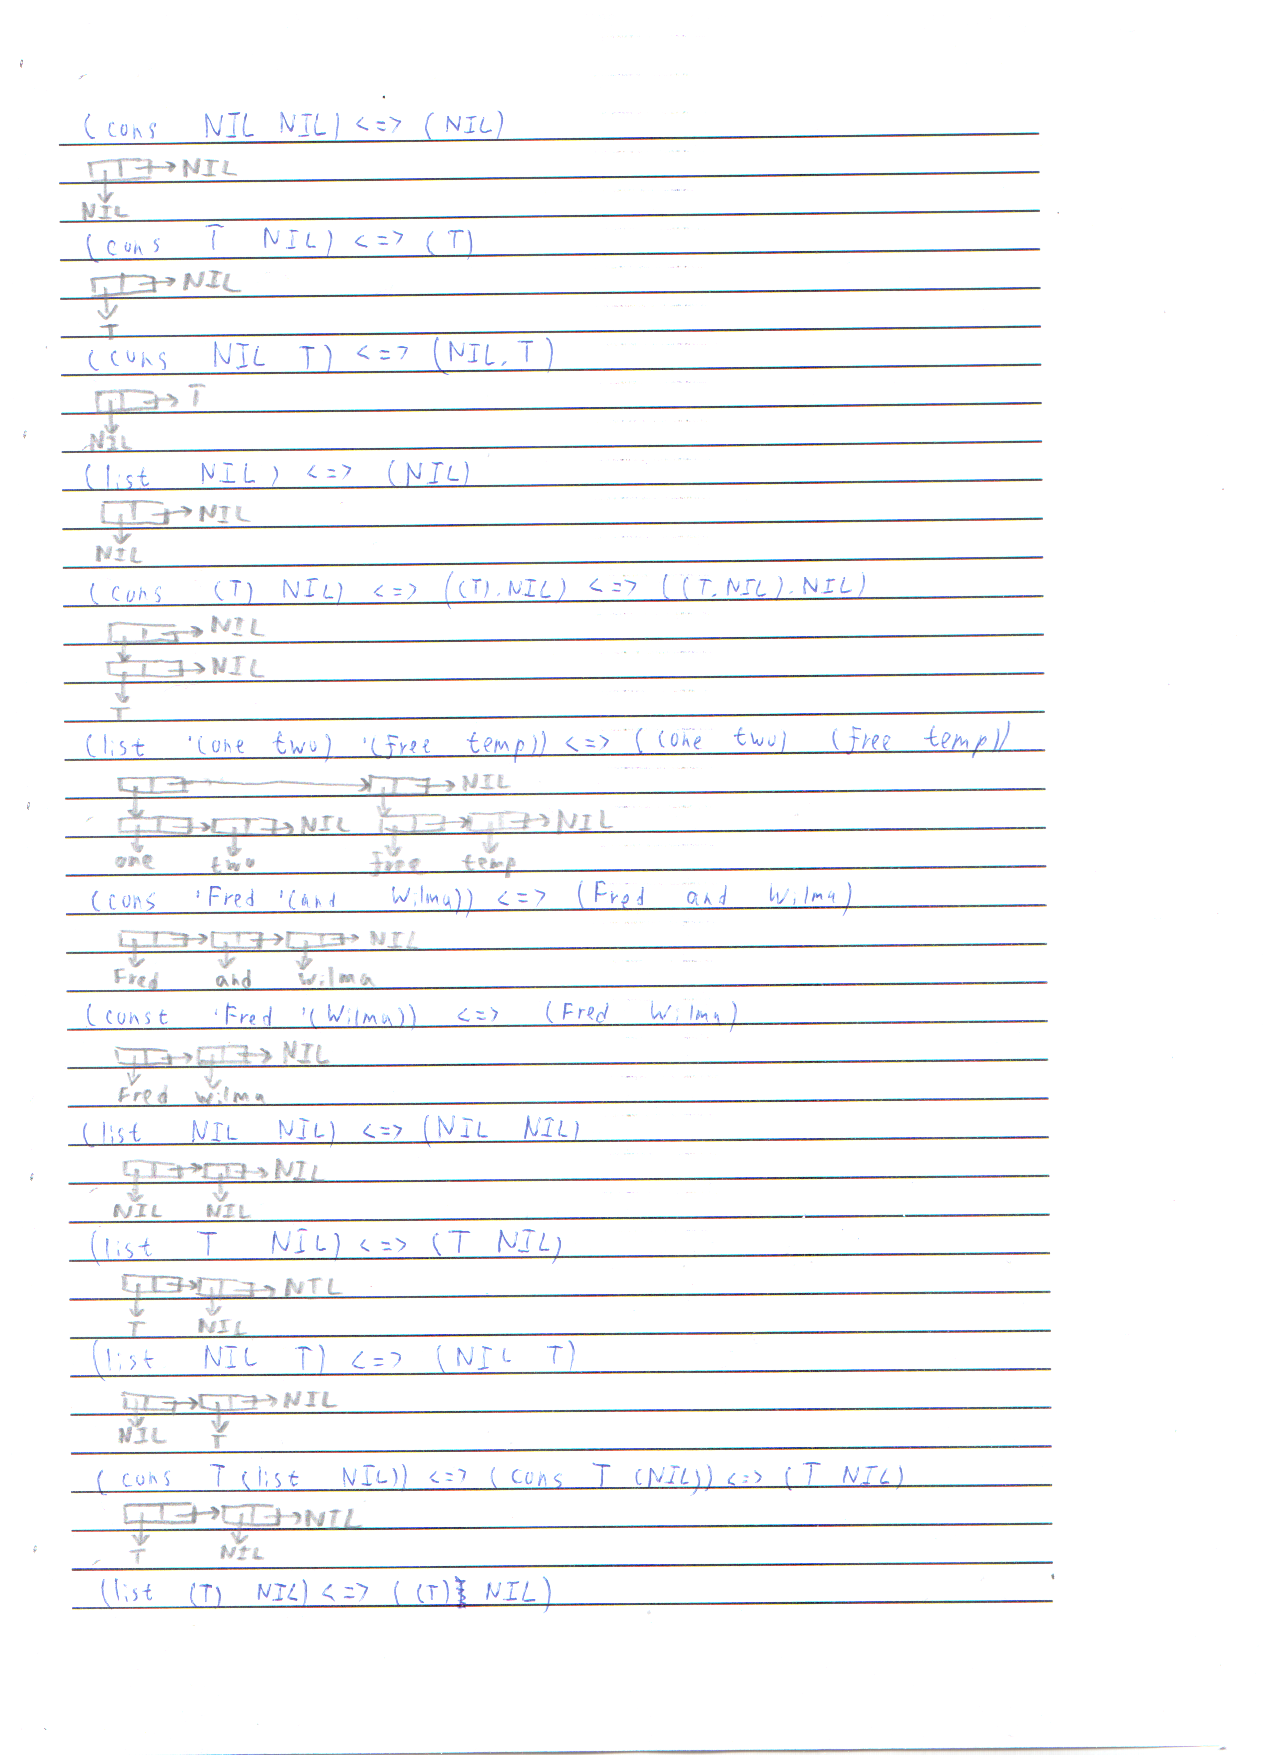 (cons NIL NIL) <=> (NIL)
→ NIL
NIL
(cons T NIL) <=> (T)
→ NIL
T
(cons NIL T) <=> (NIL.T)
→ T
NIL
(list NIL) <=> (NIL)
→ NIL
NIL
(cons (T) NIL) <=> ((T).NIL) <=> ((T.NIL).NIL)
→ NIL
→ NIL
T
(list '(one two) '(free temp)) <=> ((one two) (free temp))
→ NIL
→ NIL → NIL
one two free temp
(cons 'Fred '(and Wilma)) <=> (Fred and Wilma)
→ NIL
Fred and Wilma
(const 'Fred '(Wilma)) <=> (Fred Wilma)
→ NIL
Fred Wilma
(list NIL NIL) <=> (NIL NIL)
→ NIL
NIL NIL
(list T NIL) <=> (T NIL)
→ NIL
T NIL
(list NIL T) <=> (NIL T)
→ NIL
NIL T
(cons T (list NIL)) <=> (cons T (NIL)) <=> (T NIL)
→ NIL
T NIL
(list (T) NIL) <=> ((T) NIL)